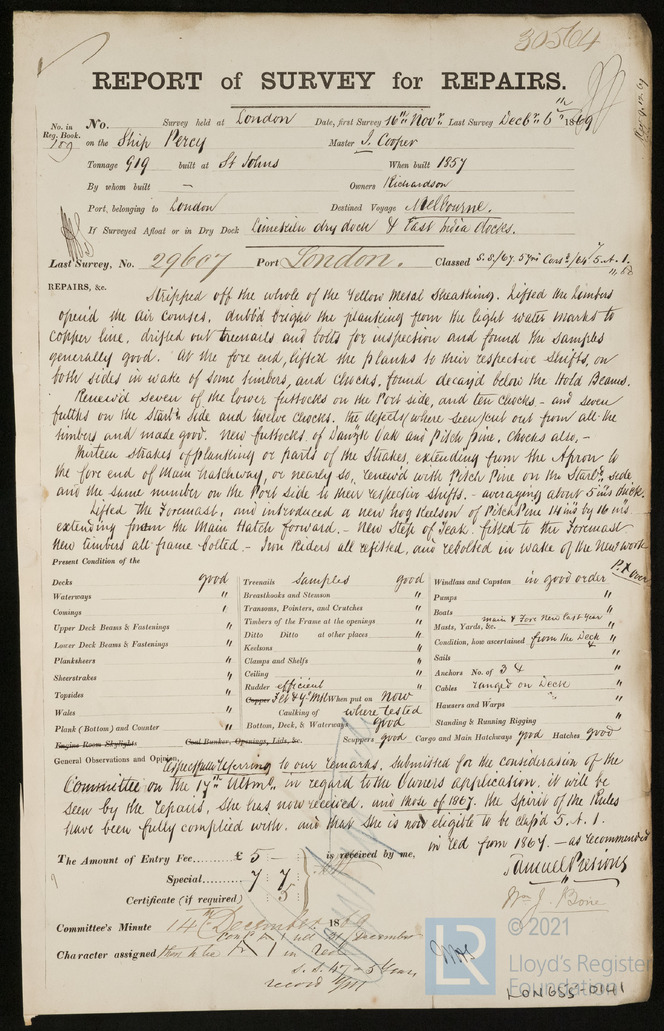 30564
REPORT of SURVEY for REPAIRS.
No. in Reg. Book. No. Survey held at London Date, first Survey 16th Novr. Last Survey Decbr. 6th 1869
709 on the Ship Percy Master J. Cooper
Tonnage 919 built at St Johns When built 1857
By whom built – Owners Richardson
Port belonging to London Destined Voyage Melbourne.
If Surveyed Afloat or in Dry Dock Limekiln dry dock & East India docks.
Last Survey, No. 29607 Port London. Classed S.S./67. 5 yrs Cont./64. 5. A. 1.
REPAIRS, &c. Stripped off the whole of the Yellow Metal Sheathing. Lifted the limbers
open'd the air courses, dubb'd bright the planking from the light water marks to
copper line, drifted out treenails and bolts for inspection and found the samples
generally good. At the fore end, lifted the planks to their respective shifts, on
both sides in wake of some timbers, and chocks, found decay'd below the Hold Beams.
Renew'd seven of the lower futtocks on the Port side, and ten chocks – and seven
futtks on the Starbd. side and twelve chocks. the defects, where seen, cut out from all the
timbers and made good. New futtocks of Dantzic Oak and Pitch pine, Chocks also, –
Thirteen strakes of planking or parts of the Strakes, extending from the Apron to
the fore end of Main hatchway, or nearly so, renew'd with Pitch Pine on the Starbd. side
and the same number on the Port side to their respective shifts. – averaging about 5 ins thick.
Lifted the Foremast, and introduced a new hog Keelson of Pitch Pine 14 ins by 16 ins
extending from the Main Hatch forward. – New Step of Teak fitted to the Foremast
New timbers all frame bolted. – Iron Riders all refitted, and rebolted in wake of the New work
P.T. over
Present Condition of the
Decks good
Waterways "
Comings "
Upper Deck Beams & Fastenings "
Lower Deck Beams & Fastenings "
Planksheers "
Sheerstrakes "
Topsides "
Wales "
Plank (Bottom) and Counter "
Engine Room Skylights Coal Bunker, Openings, Lids, &c.
Treenails Samples good
Breasthooks and Stemson "
Transoms, Pointers, and Crutches "
Timbers of the Frame at the openings "
Ditto Ditto at other places "
Keelsons "
Clamps and Shelfs "
Ceiling "
Rudder efficient
Copper Felt & Y. Mtl When put on Now
Caulking of where tested
Bottom, Deck, & Waterways good
Scuppers good Cargo and Main Hatchways good Hatches good
Windlass and Capstan in good order
Pumps "
Boats "
Masts, Yards, &c. main & Fore New last year "
Condition, how ascertained from the Deck "
Sails "
Anchors No. of 3 4 "
Cables ranged on Deck "
Hawsers and Warps "
Standing & Running Rigging "
General Observations and Opinion, respectfully referring to our remarks, submitted for the consideration of the
Committee on the 17th Ultmo. in regard to the Owners application, it will be
seen by the repairs, she has now received, and those of 1867, the spirit of the Rules
have been fully complied with. and that she is now eligible to be class'd 5. A. 1.
in red from 1867 – as recommended
The Amount of Entry Fee........ £ 5 – is received by me,
Special........ 7 7
Certificate (if required) 5
Samuel Pressous
Wm J. Bone
Committee's Minute 14th December 1869
Character assigned
A 1 in Red
S.S. 67 – 5 Years
© 2021
LR
Lloyd's Register
Foundation
LON655-0141